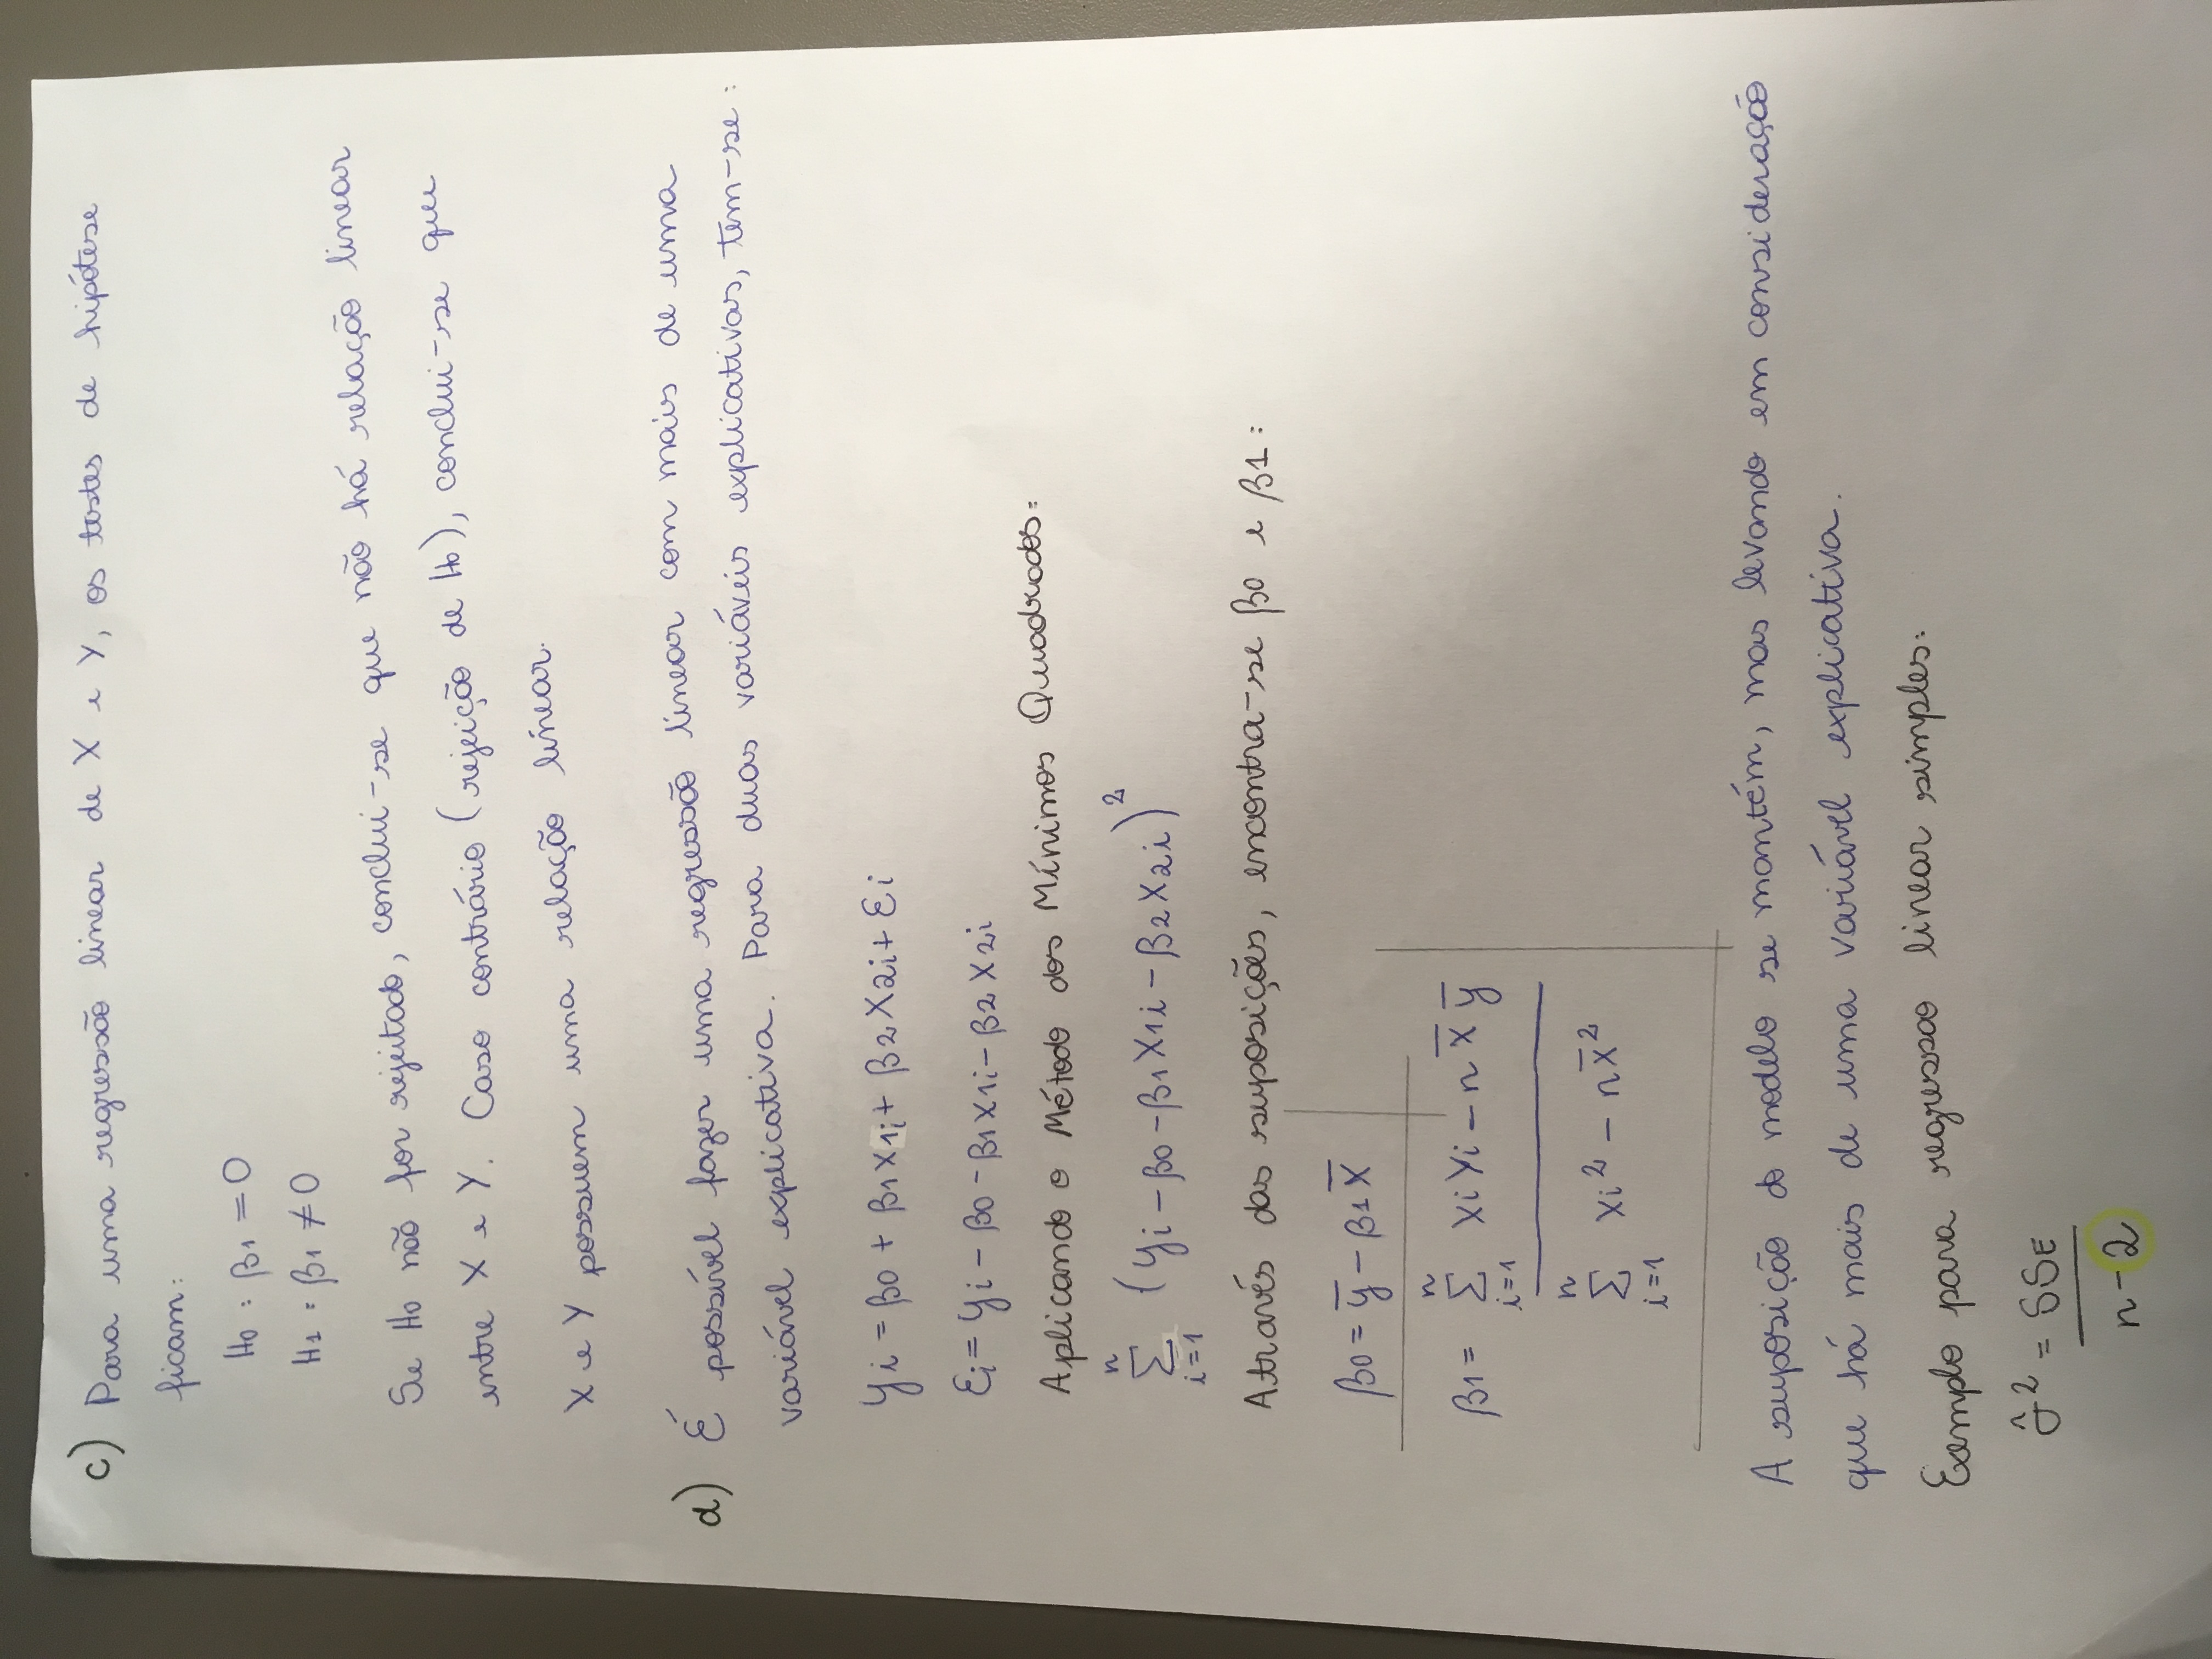 c) Para uma regressão linear de X e Y, os testes de hipótese
ficam:
H0 : β1 = 0
H1 : β1 ≠ 0
Se H0 não for rejeitado, conclui-se que não há relação linear
entre X e Y. Caso contrário (rejeição de H0), conclui-se que
X e Y possuem uma relação linear.
d) É possível fazer uma regressão linear com mais de uma
variável explicativa. Para duas variáveis explicativas, tem-se:
yi = β0 + β1 x1i + β2 x2i + Ei
Ei = yi - β0 - β1 x1i - β2 x2i
Aplicando o Método dos Mínimos Quadrados:
n
∑ (yi - β0 - β1 x1i - β2 x2i)²
i=1
Através das suposições, encontra-se β0 e β1:
β0 = y̅ - β1 x̅
n
β1 = ∑ xi yi - n x̅ y̅
i=1
n
∑ xi² - n x̅²
i=1
A suposição do modelo se mantém, mas levando em consideração
que há mais de uma variável explicativa.
Exemplo para regressão linear simples:
σ̂² = SSE
n-2